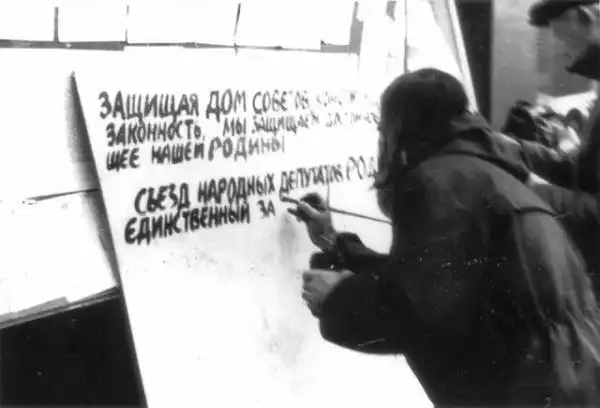 ЗАЩИЩАЯ ДОМ СОВЕТОВ,
ЗАКОННОСТЬ, МЫ ЗАЩИЩАЕМ
ЩЕЕ НАШЕЙ РОДИНЫ
СЪЕЗД НАРОДНЫХ ДЕПУТАТОВ РОД
ЕДИНСТВЕННЫЙ ЗА